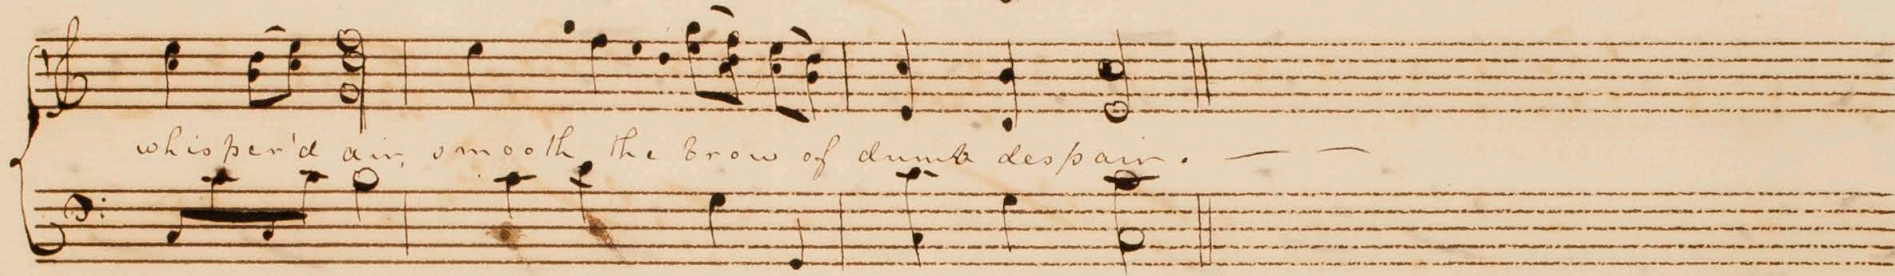 whisper'd air, smooth the brow of dumb despair. — —